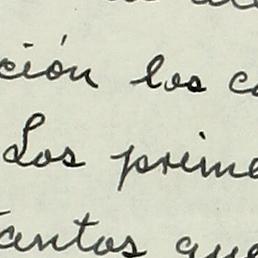 ción los c
Los prime
tantos que